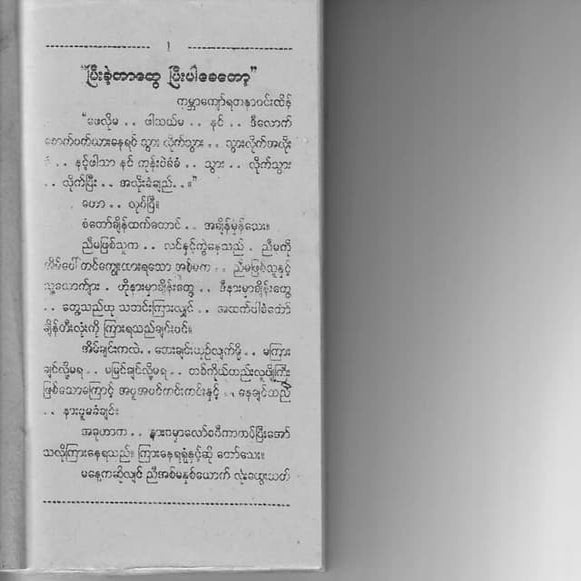 ၂
"ပြီးခဲ့တာတွေ ပြီးပါစေတော့"
ကမ္ဘာကျော်ရတနာဝင်းထိန်
"ဖေလိုမ . . ဖါသယ်မ . . နင် . . ဒီလောက်
တောက်ပက်ယားနေရင် သွား လိုက်သွား . . သွားလိုက်အလိုး
ခံ . . နင့်ဖါသာ နင် ကုန်းပဲခံခံ . . သွား . . လိုက်သွား
. . လိုက်ပြီး . . အလိုးခံချည် . .။"
ဟော . . လုပ်ပြီ။
စံတော်ချိန်ထက်တောင် . . အချိန်မှန်သေး။
ညီမဖြစ်သူက . . လင်နှင့်ကွဲနေသည် . ညီမကို
အိမ်ပေါ် တင်ကျွေးထားရသော အစ်မက . . ညီမဖြစ်သူနှင့်
သူ့ယောက်ျား . ဟိုနားမှာချိန်းတွေ့ . . ဒီနားမှာချိန်းတွေ့
. . တွေ့သည်ဟု သတင်းကြားလျှင် . . အထက်ပါစံတော်
ချိန်တီးလုံးကို ကြားရသည်ချင်းပင်။
အိမ်ချင်းကလဲ . . ဘေးချင်းယှဉ်လျက်မို့ . . မကြား
ချင်လို့မရ . . မမြင်ချင်လို့မရ . . တစ်ကိုယ်တည်းလူပျိုကြီး
ဖြစ်သောကြောင့် အပူအပင်ကင်းကင်းနှင့် . . နေချင်သည်
. . နားပူမခံချင်၊
အခုဟာက . . နားဝမှာလော်စပီကာကပ်ပြီးအော်
သလိုကြားနေရသည်။ ကြားနေရရုံနှင့်ဆို တော်သေး။
မနေ့ကဆိုလျှင် ညီအစ်မနှစ်ယောက် လုံးထွေးသတ်